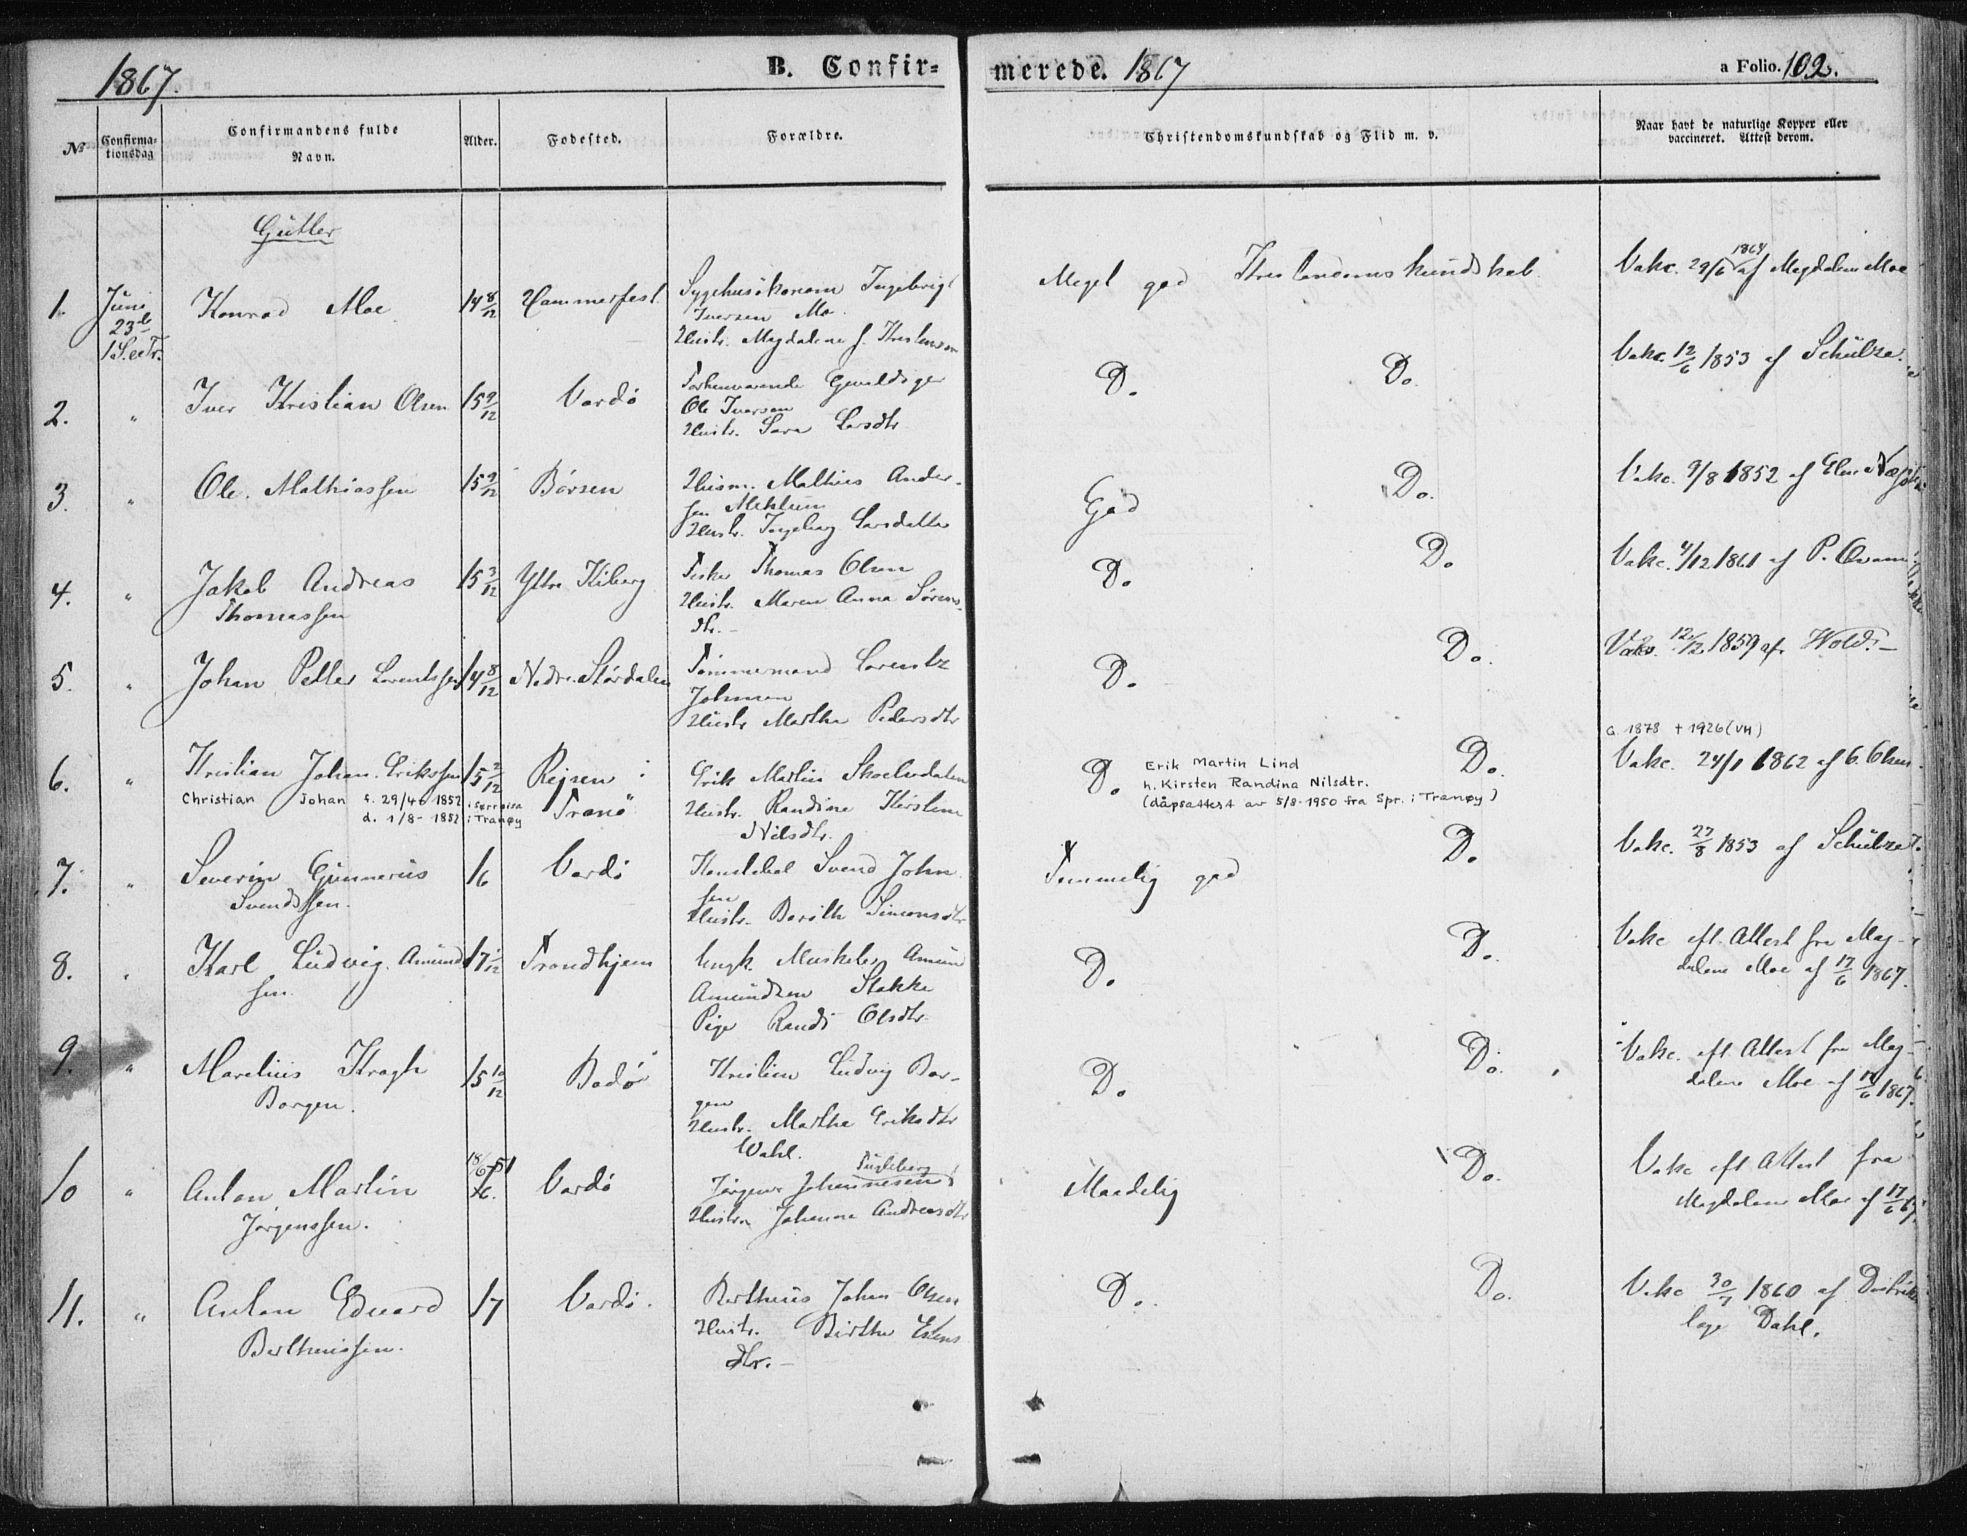 1867.
B. Confir=
merede. 1867
a Folio. 102.
No
Confirma-
tionsdag
Confirmandens fulde
Navn.
Alder.
Fødested.
Forældre.
Christendomskundskab og Flid m. v.
Naar havt de naturlige Kopper eller
vaccineret. Attest derom.
Gutter
1. Juni
23de
1 S. e Tr.
Konrad Moe 14 8/12 Hammerfest
Sygehusøkonom Ingebrigt
Iversen Mo.
Hustr. Magdalene f.
Meget god Kristendomskundskab
Vakc. 29/6 1864 af Magdalene Moe
2. " Iver Kristian Olsen 15 9/12 Vardø
Forhenværende Gevaldiger
Ole Iversen
Hustr. Sara Larsdtr.
Do. Do.
Vakc. 12/6 1853 af Schülze.
3. " Ole Mathiassen 15 9/12 Børsen
Husm. Mathias Ander-
sen
Hustr. Ingeborg Larsdatter
God Do.
Vakc. 9/8 1852 af
4. " Jakob Andreas
Thomassen
15 3/12 Yttre Kiberg
Fisker Thomas Olsen
Hustr. Maren Anna Sørens-
dtr.-
Do. Do.
Vakc. 4/12 1861 af P.
5. " Johan Petter Lorentssen 14 8/12 Nedre Størdalen
Tømmermand Lorentz
Johnsen
Hustr Martha Pedersdtr
Do. Do.
Vakc. 12/2 1859 af Wold.-
6. " Kristian Johan Erikssen 15 2/12 Rejsen i
Tranø
Christian Johan f. 29/4 1852 i Sørreisa
d. 1/8- 1852 i Tranøy
Erik Martin
Hustr. Randine Kirstine
Nilsdtr.
Do. Do.
Erik Martin Lind
h. Kirsten Randina Nilsdtr.
(dåpsattest av 5/8-1950 fra Spr. i Tranøy)
G. 1878 + 1926 (VH)
Vakc. 24/1 1862 af G. Olsen
7. " Severin Gunnerius
Svendssen.
16 Vardø
Konstabel Svend John
sen
Hustr. Berith Simonsdtr
Temmelig god Do.
Vakc. 27/8 1853 af Schülze
8. " Karl Ludvig Amund
sen
17 1/12 Trondhjem
Ungk. Musketer Amund
Amundsen Stokke
Pige Randi Olsdtr.
Do. Do.
Vakc eft. Attest fra Mag-
dalene Moe af 17/6 1867.
9. " Marelius Kragh
Borgen.
15 10/12 Bodø
Kristian Ludvig Bor-
gen
Hustr. Martha Eriksdtr
Wahl.
Do. Do.
Vakc. eft. Attest fra Mag-
dalene Moe af 17/6 1867.
10 " Anton Martin
Jørgenssen.
18/6 51
16. Vardø
Jørgen Johannesen
Hustru Johanna Andreasdtr
Maadelig Do.
Vakc eft Attest fra
Magdalene Moe af 17/6 67.
11. " Anton Edvard
Bertheussen.
17 Vardø.
Bertheus Johan Olsen
Hustr. Birthe
dtr.-
Do. Do.
Vakc 30/7 1860 af Distrikts
læge Dahl.